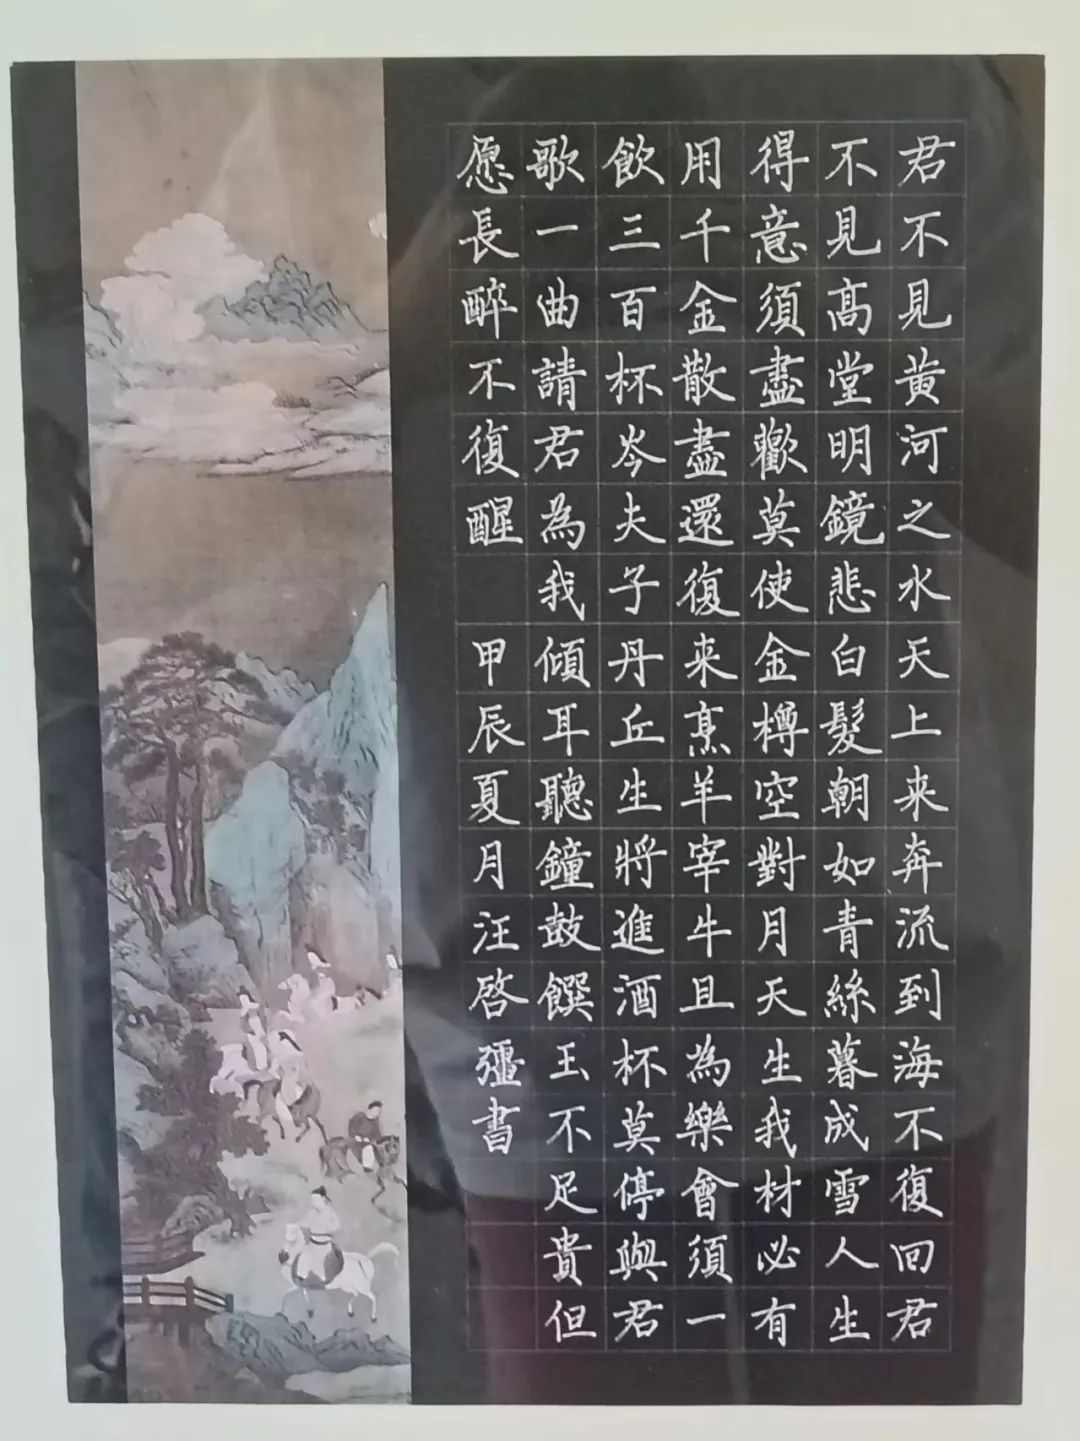 君不見黄河之水天上来奔流到海不復回君
不見髙堂明鏡悲白髮朝如青絲暮成雪人生
得意須盡歡莫使金樽空對月天生我材必有
用千金散盡還復来烹羊宰牛且為樂會須一
飲三百杯岑夫子丹丘生將進酒杯莫停與君
歌一曲請君為我傾耳聽鐘鼓饌玉不足貴但
愿長醉不復醒 甲辰夏月汪啓彊書